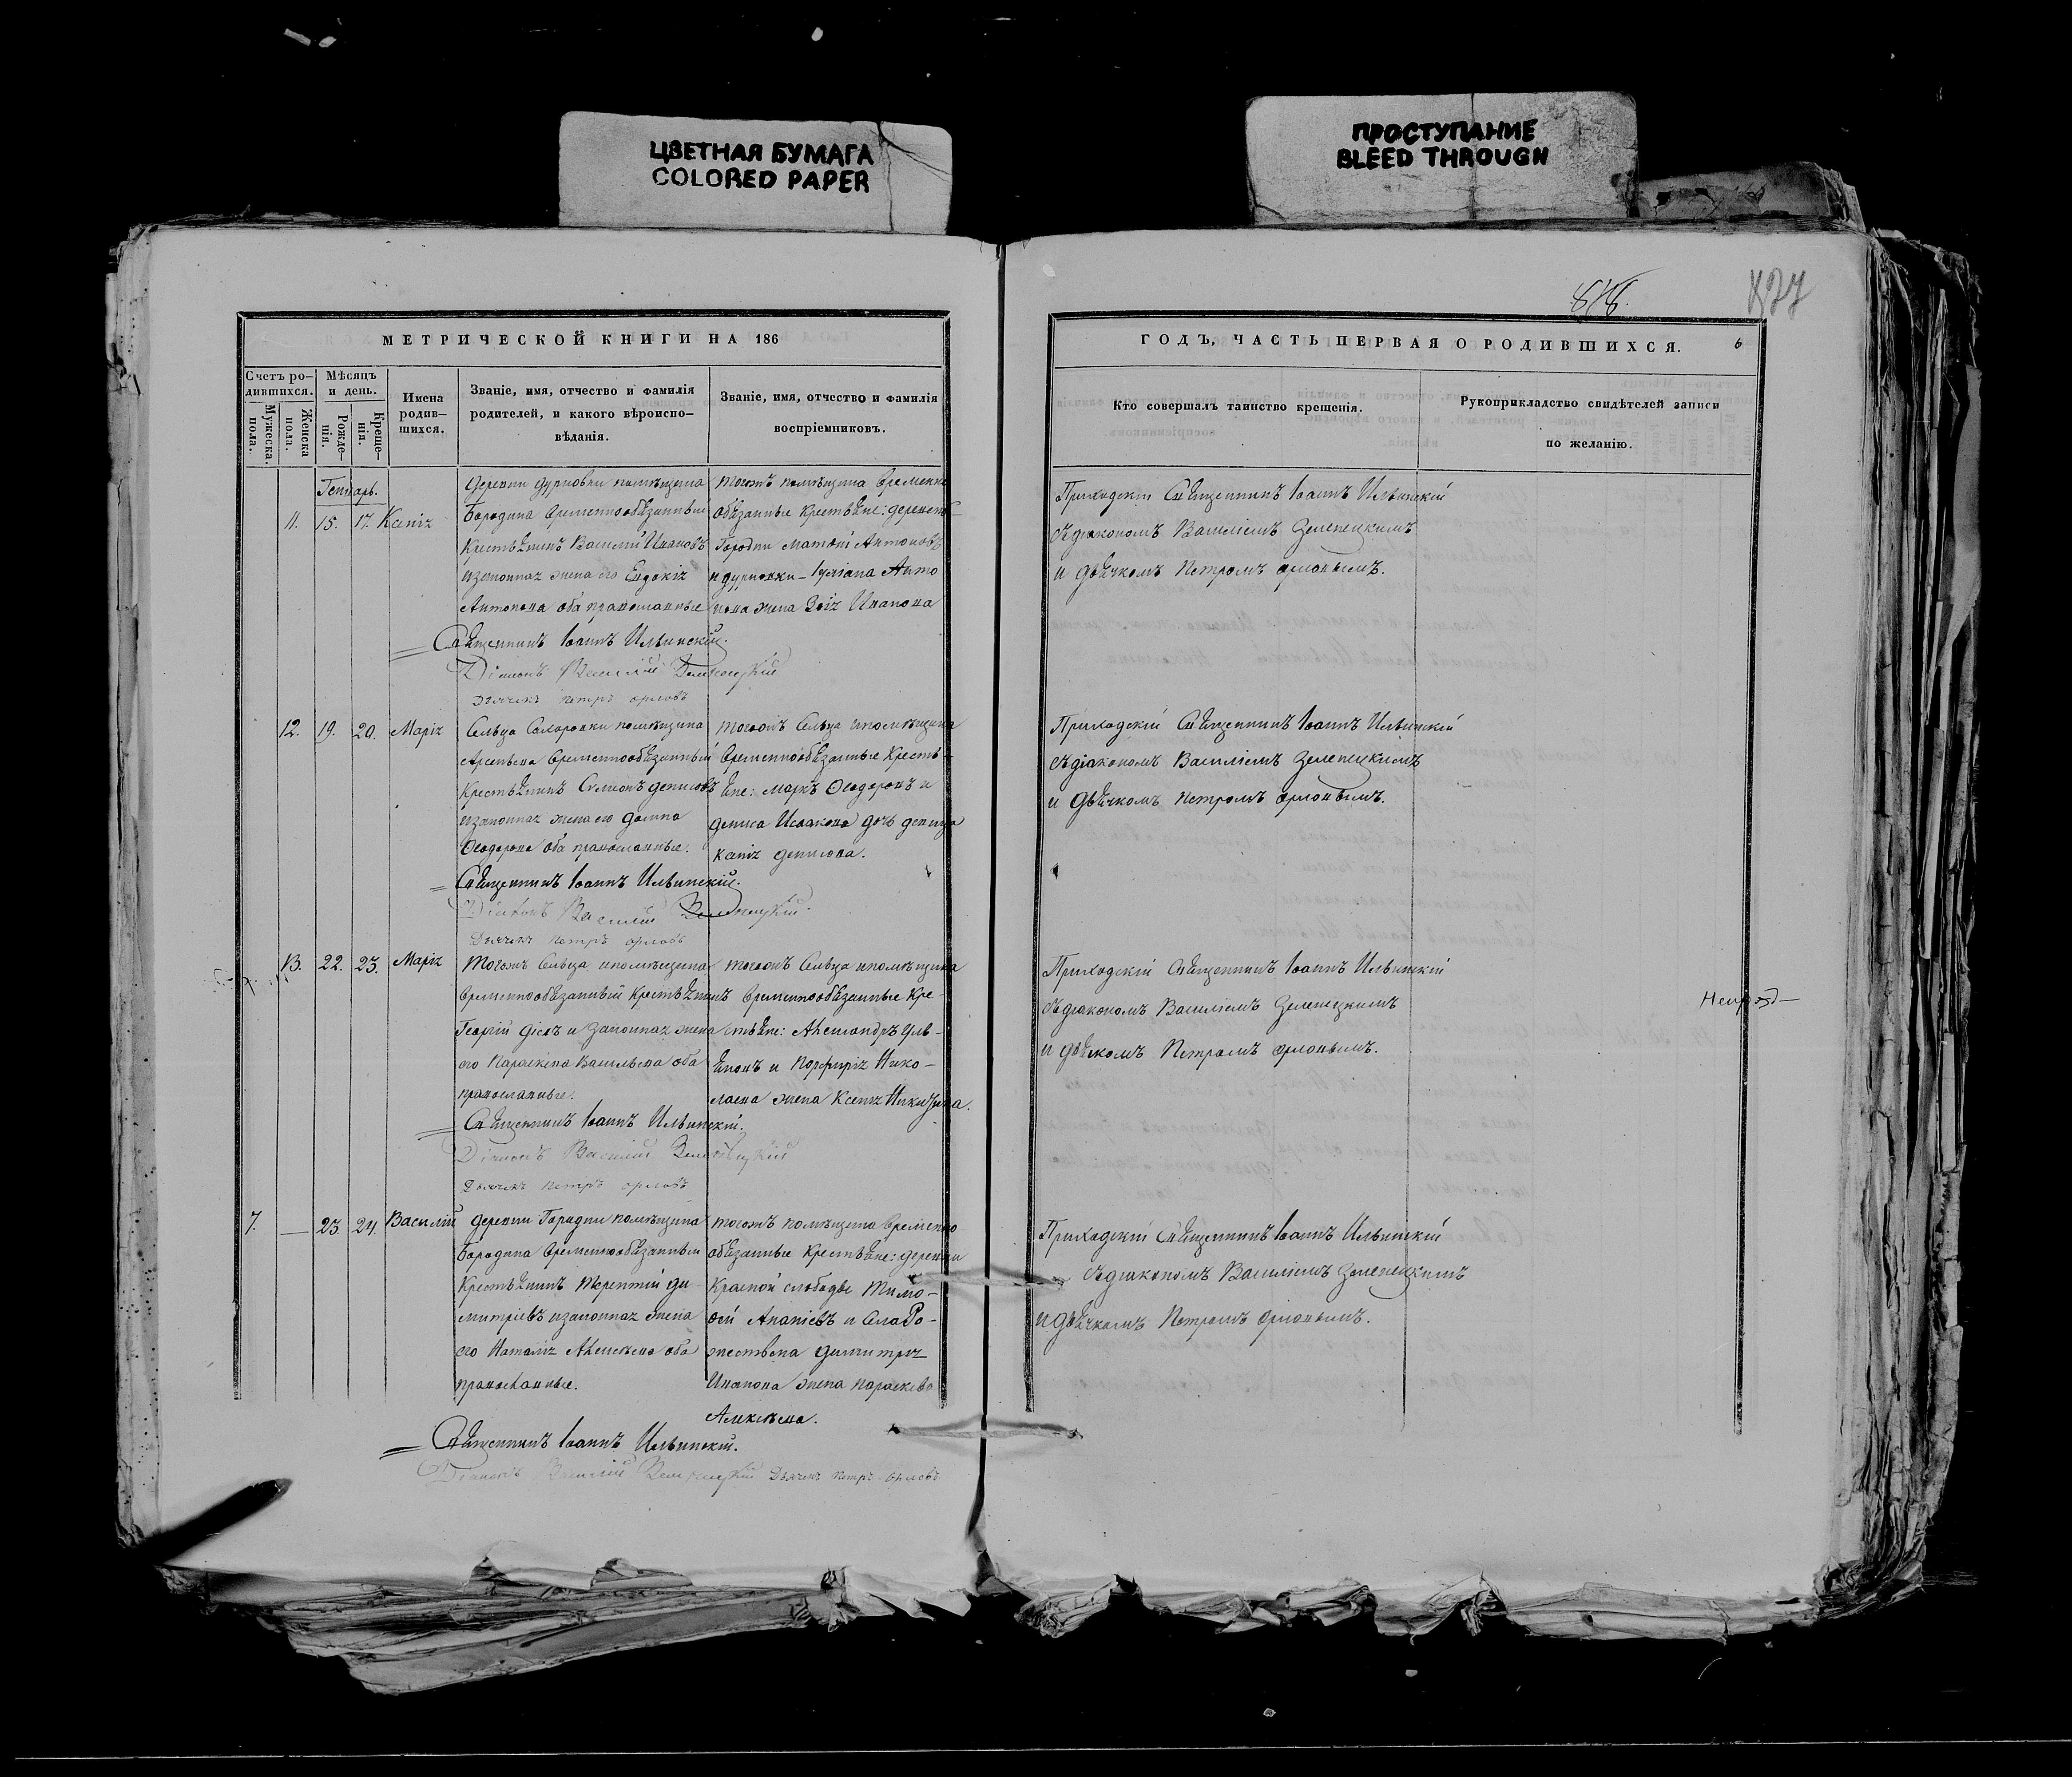 ЦВЕТНАЯ БУМАГА
COLORED PAPER
ПРОСТУПАНИЕ
BLEED THROUGH
МЕТРИЧЕСКОЙ КНИГИ НА 186
Счетъ ро-
дившихся.
Мужеска.
пола.
Женска
пола.
Мѣсяцъ
и день.
Рожде-
нія.
Креще-
нія.
Имена
родив-
шихся.
Званіе, имя, отчество и фамилія
родителей, и какого вѣроиспо-
вѣданія.
Званіе, имя, отчество и фамилія
воспріемниковъ.
Генварь.
11. 15. 17. Ксенія
деревни Дурновки помѣщика
Бородина временнообязанный
крестьянинъ Василій Ивановъ
изаконная жена его Евдокія
Антонова оба православные
тогожъ помѣщика временно
обязанные крестьяне: деревень
Городни Матвѣй Антоновъ
и Дурновки
жена Зоія Иванова
Священникъ Іоаннъ Ильинскій.
Діаконъ Василій Зеленецкій
Дьячекъ Петръ Орловъ
12. 19. 20. Марія
Сельца помѣщика
Арсеньева временнообязанный
крестьянинъ Сумеонъ Денисовъ
изаконная жена его Домна
Ѳеодорова оба православные.
тогожъ Сельца ипомѣщика
временнообязанные кресть-
яне: Маркъ Ѳеодоровъ и
Дениса Исаакова дочь девица
Ксенія Денисова.
Священникъ Іоаннъ Ильинскій.
Діаконъ Василій Зеленецкій.
Дьячекъ Петръ Орловъ
13. 22. 23. Марія
тогожъ Сельца ипомѣщика
временнообязанный крестьянинъ
Георгій и законная жена
его Параскева Васильева оба
православные.
тогожъ Сельца ипомѣщика
временнообязанные кре-
стьяне: Александръ Уль-
яновъ и Порфирія Нико-
лаева жена Ксенія
Священникъ Іоаннъ Ильинскій.
Діаконъ Василій Зеленецкій
Дьячекъ Петръ Орловъ
7. — 23. 24. Василій
деревни Городни помѣщика
Бородина временнообязанный
крестьянинъ Терентій Ди-
митріевъ изаконная жена
его Наталія Алексѣева оба
православные.
тогожъ помѣщика временно
обязанные крестьяне: деревни
Красной слободы Тимо-
ѳей Ананіевъ и Села Ро-
жествена Димитрія
Иванова жена Параскева
Алексѣева.
Священникъ Іоаннъ Ильинскій.
Діаконъ Василій Зеленецкій Дьячекъ Петръ Орловъ
ГОДЪ, ЧАСТЬ ПЕРВАЯ О РОДИВШИХСЯ.
6
Кто совершалъ таинство крещенія.
Рукоприкладство свидѣтелей записи
по желанію.
Приходскій Священникъ Іоаннъ Ильинскій
съдіакономъ Василіемъ Зеленецкимъ
и дьячкомъ Петромъ Орловымъ.
Приходскій Священникъ Іоаннъ Ильинскій
съдіакономъ Василіемъ Зеленецкимъ
и дьячкомъ Петромъ Орловымъ.
Приходскій Священникъ Іоаннъ Ильинскій
съдіакономъ Василіемъ Зеленецкимъ
и дьячкомъ Петромъ Орловымъ.
Приходскій Священникъ Іоаннъ Ильинскій
съдіакономъ Василіемъ Зеленецкимъ
и дьячкомъ Петромъ Орловымъ.